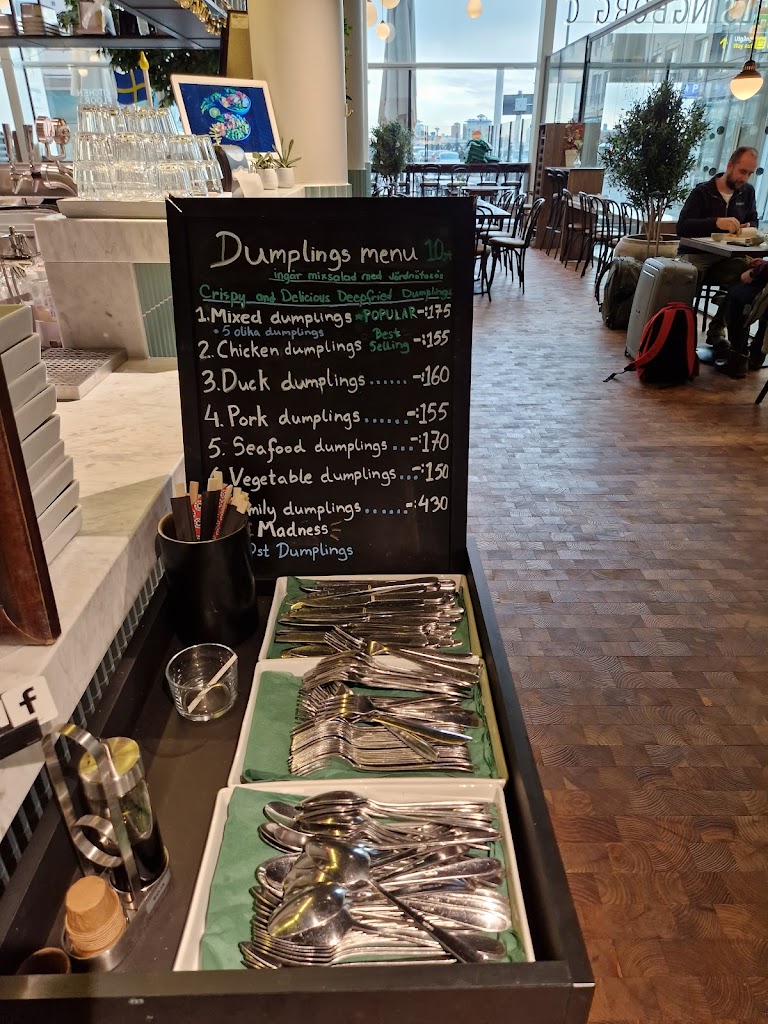 ELSINGBORG C
Utgång
Way out
Dumplings menu 10st
ingår mixsalad med Jordnötssås
Crispy and Delicious Deepfried Dumplings
1. Mixed dumplings -POPULAR-:175
• 5 olika dumplings
Best Selling
2. Chicken dumplings -:155
3. Duck dumplings......-:160
4. Pork dumplings......-:155
5. Seafood dumplings...-:170
Vegetable dumplings...-:150
mily dumplings......-:430
Madness
0st Dumplings
f